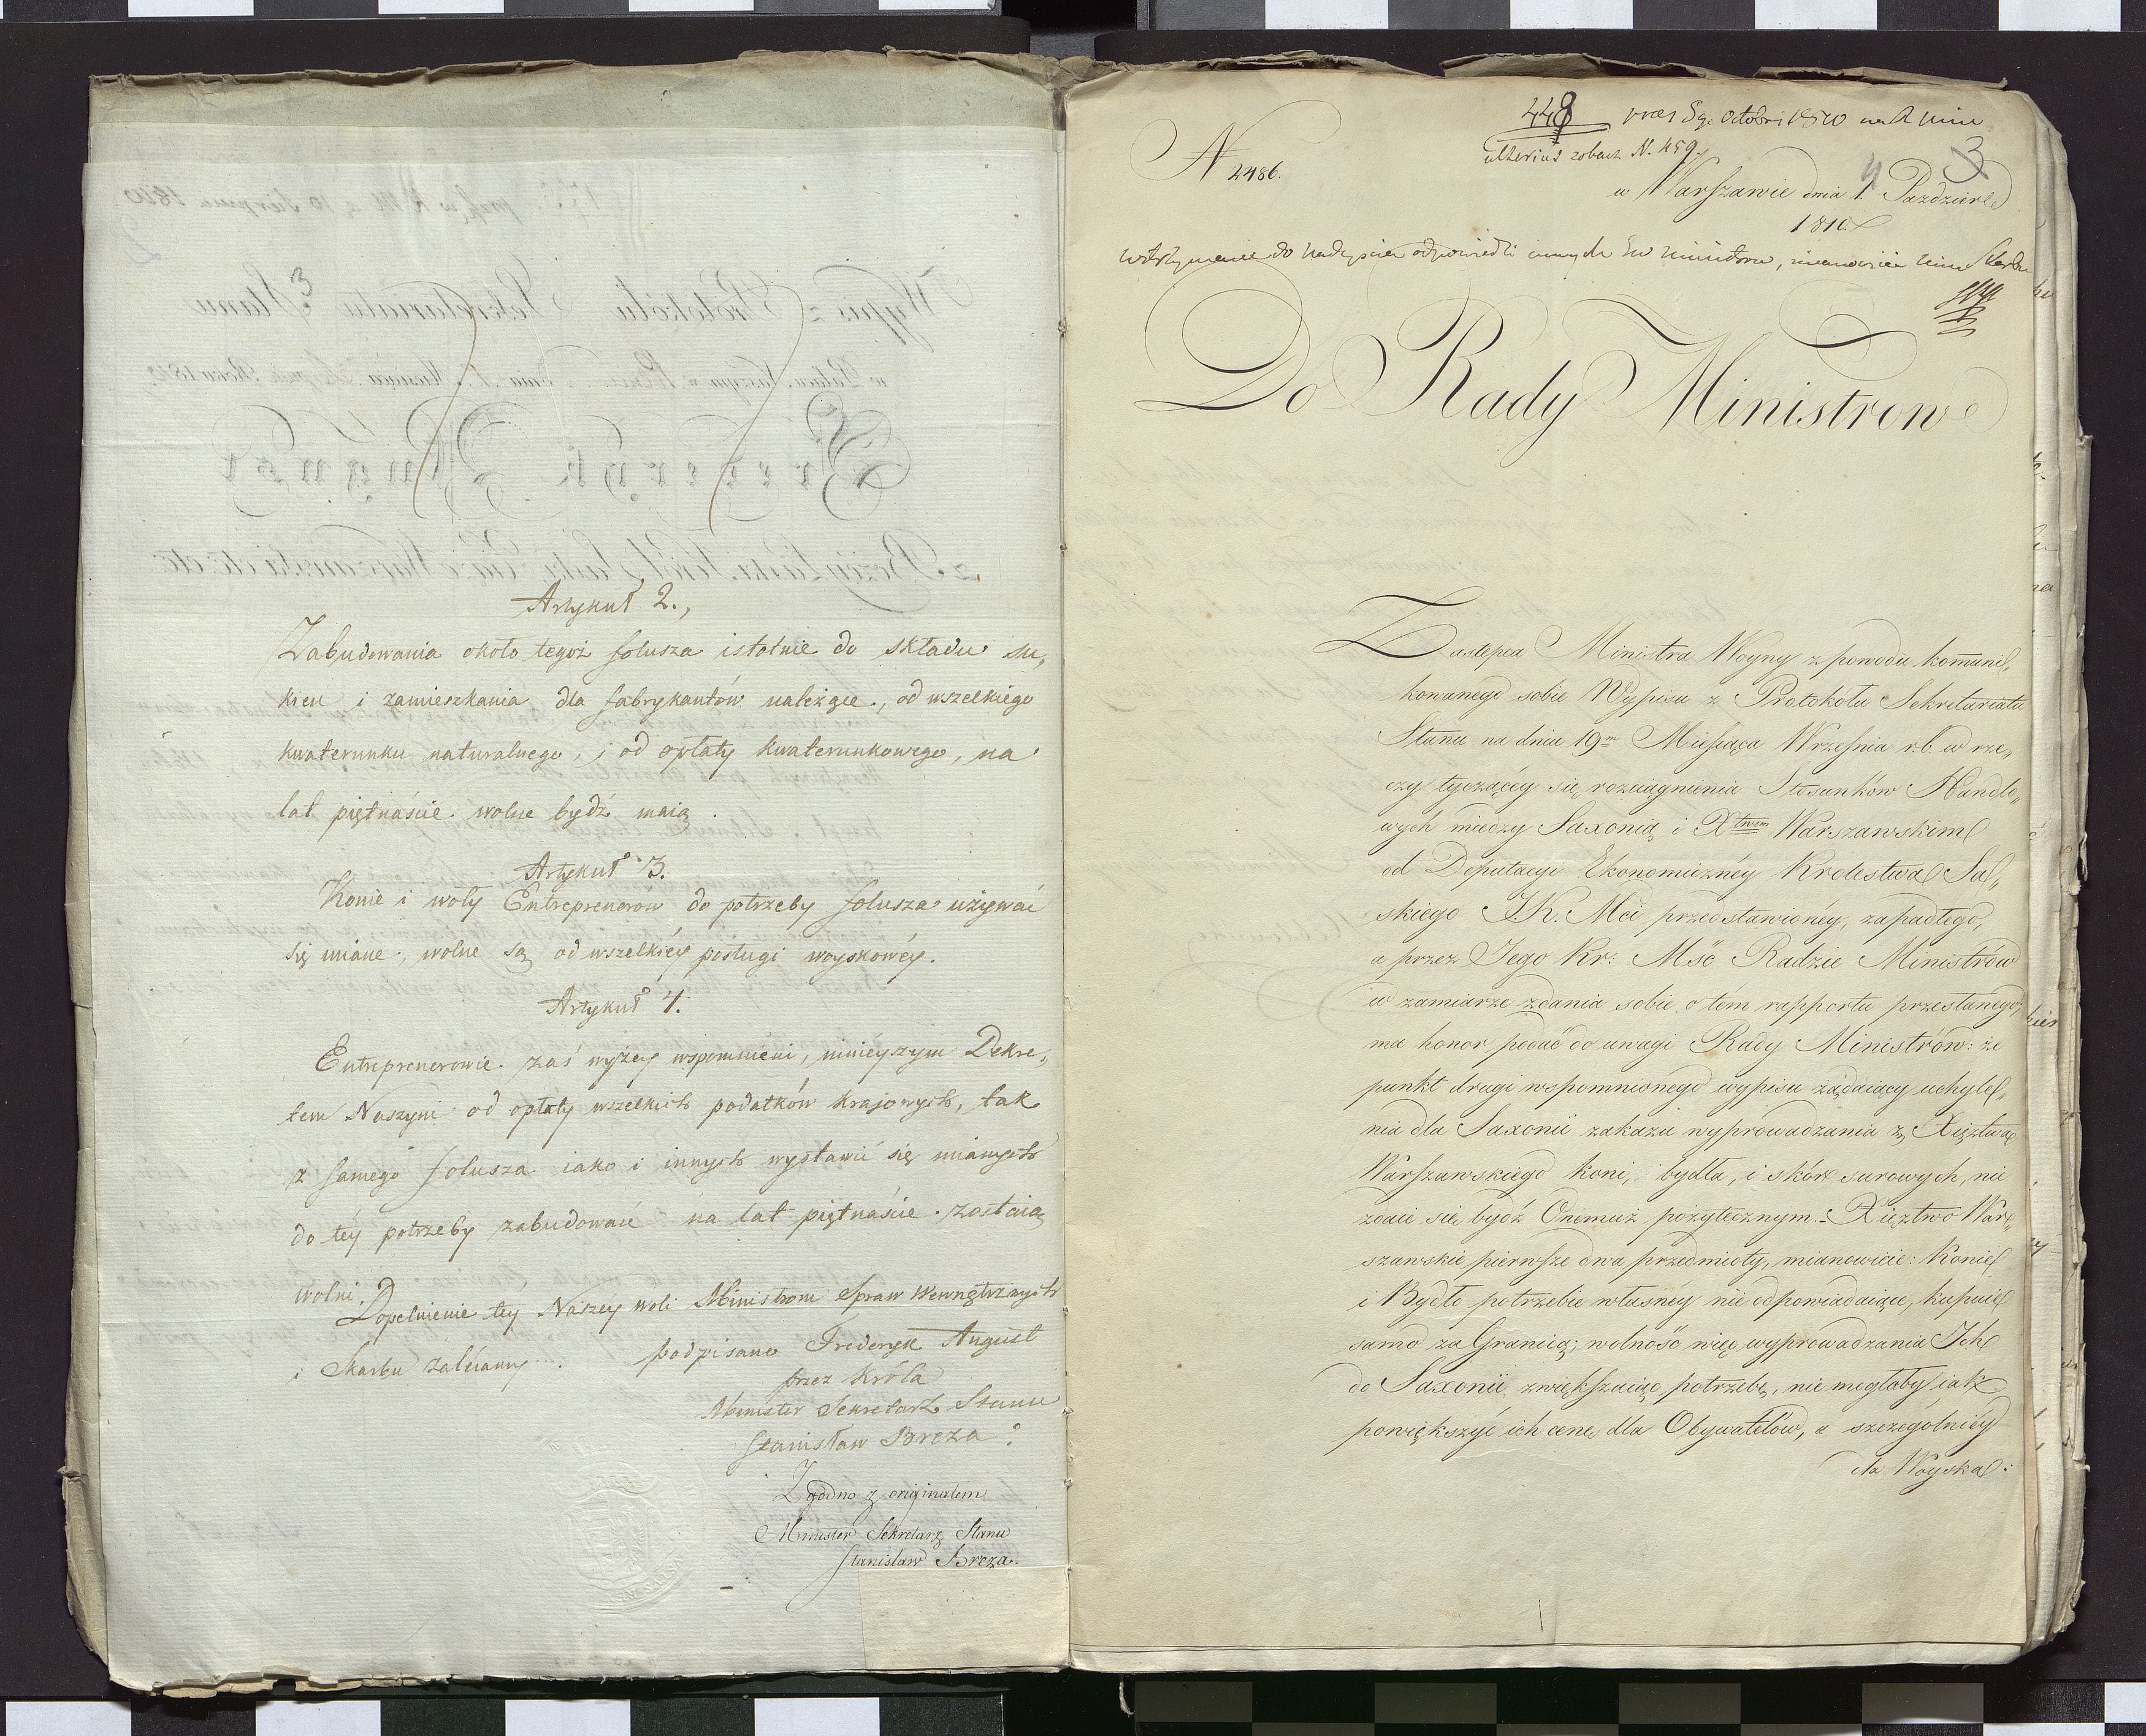 Artykuł 2.,
Zabudowania około tegoż folusza istotnie do składu su„
kien i zamieszkania dla fabrykantów należące, od wszelkiego
kwaterunku naturalnego, i od opłaty kwaterunkowego, na
lat piętnaście wolne bydź maią.
Artykuł 3.
Konie i woły Entreprenerów do potrzeby folusza używać
się miane, wolne są od wszelkiéy posługi woyskowéy.
Artykuł 4.
Entreprenerowie zaś wyżey wspomnieni, ninieyszym Dekre„
tem Naszym od opłaty wszelkich podatków krajowych, tak
z samego folusza iako i innych wystawić się mianych
do téy potrzeby zabudowań na lat piętnaście zostaią
wolni.
Dopełnienie téy Naszéy woli Ministrom Spraw Wewnętrznych
i Skarbu zalécamy.
podpisano Frederyk August
przez Króla
Minister Sekretarz Stanu
Stanisław Breza.
Zgodno z originałem
Minister Sekretarz Stanu
Stanisław Breza.
448 5 8bri 1810
ulterius zobacz N. 459.
N 2486.
4 3
w Warszawie dnia 1. Paździer
1810.
wstrzymanie do nadeyścia odpowiedzi innych Ministrów, mianowicie Skarbu
Do Rady Ministrow
Zastępca Ministra Woyny z powodu kommuni„
kowanego sobie Wypisu z Protokołu Sekretariatu
Stanu na dniu 19m Miesiąca Września r.b. w rze„
czy tyczącéy się rozciągnienia Stosunków Handlo„
wych między Saxonią i Xtwem Warszawskim
od Deputacyi Ekonomicznéy Krolestwa Sa„
skiego J.K.Mci przedstawionéy, zapadłego,
a przez Jego Kr: Mść Radzie Ministrów
w zamiarze zdania sobie o tém rapportu przesłanego,
ma honor podać do uwagi Rady Ministrów: że
punkt drugi wspomnionego wypisu żądaiący uchyle„
nia dla Saxonii zakazu wyprowadzania z Xięztwa
Warszawskiego koni, bydła, i skór surowych, nie
zdaie się bydź Onemuż pożytecznym. Xięztwo War„
szawskie pierwsze dwa przedmioty, mianowicie: Konie
i Bydło potrzebie własney nie odpowiadaiące, kupuie
samo za Granicą; wolność więc wyprowadzania Ich
do Saxonii zwiększaiąc potrzebę, nie mogłaby iak
powiększyć ich cenę dla Obywatelów, a szczególniéy
dla Woyska: